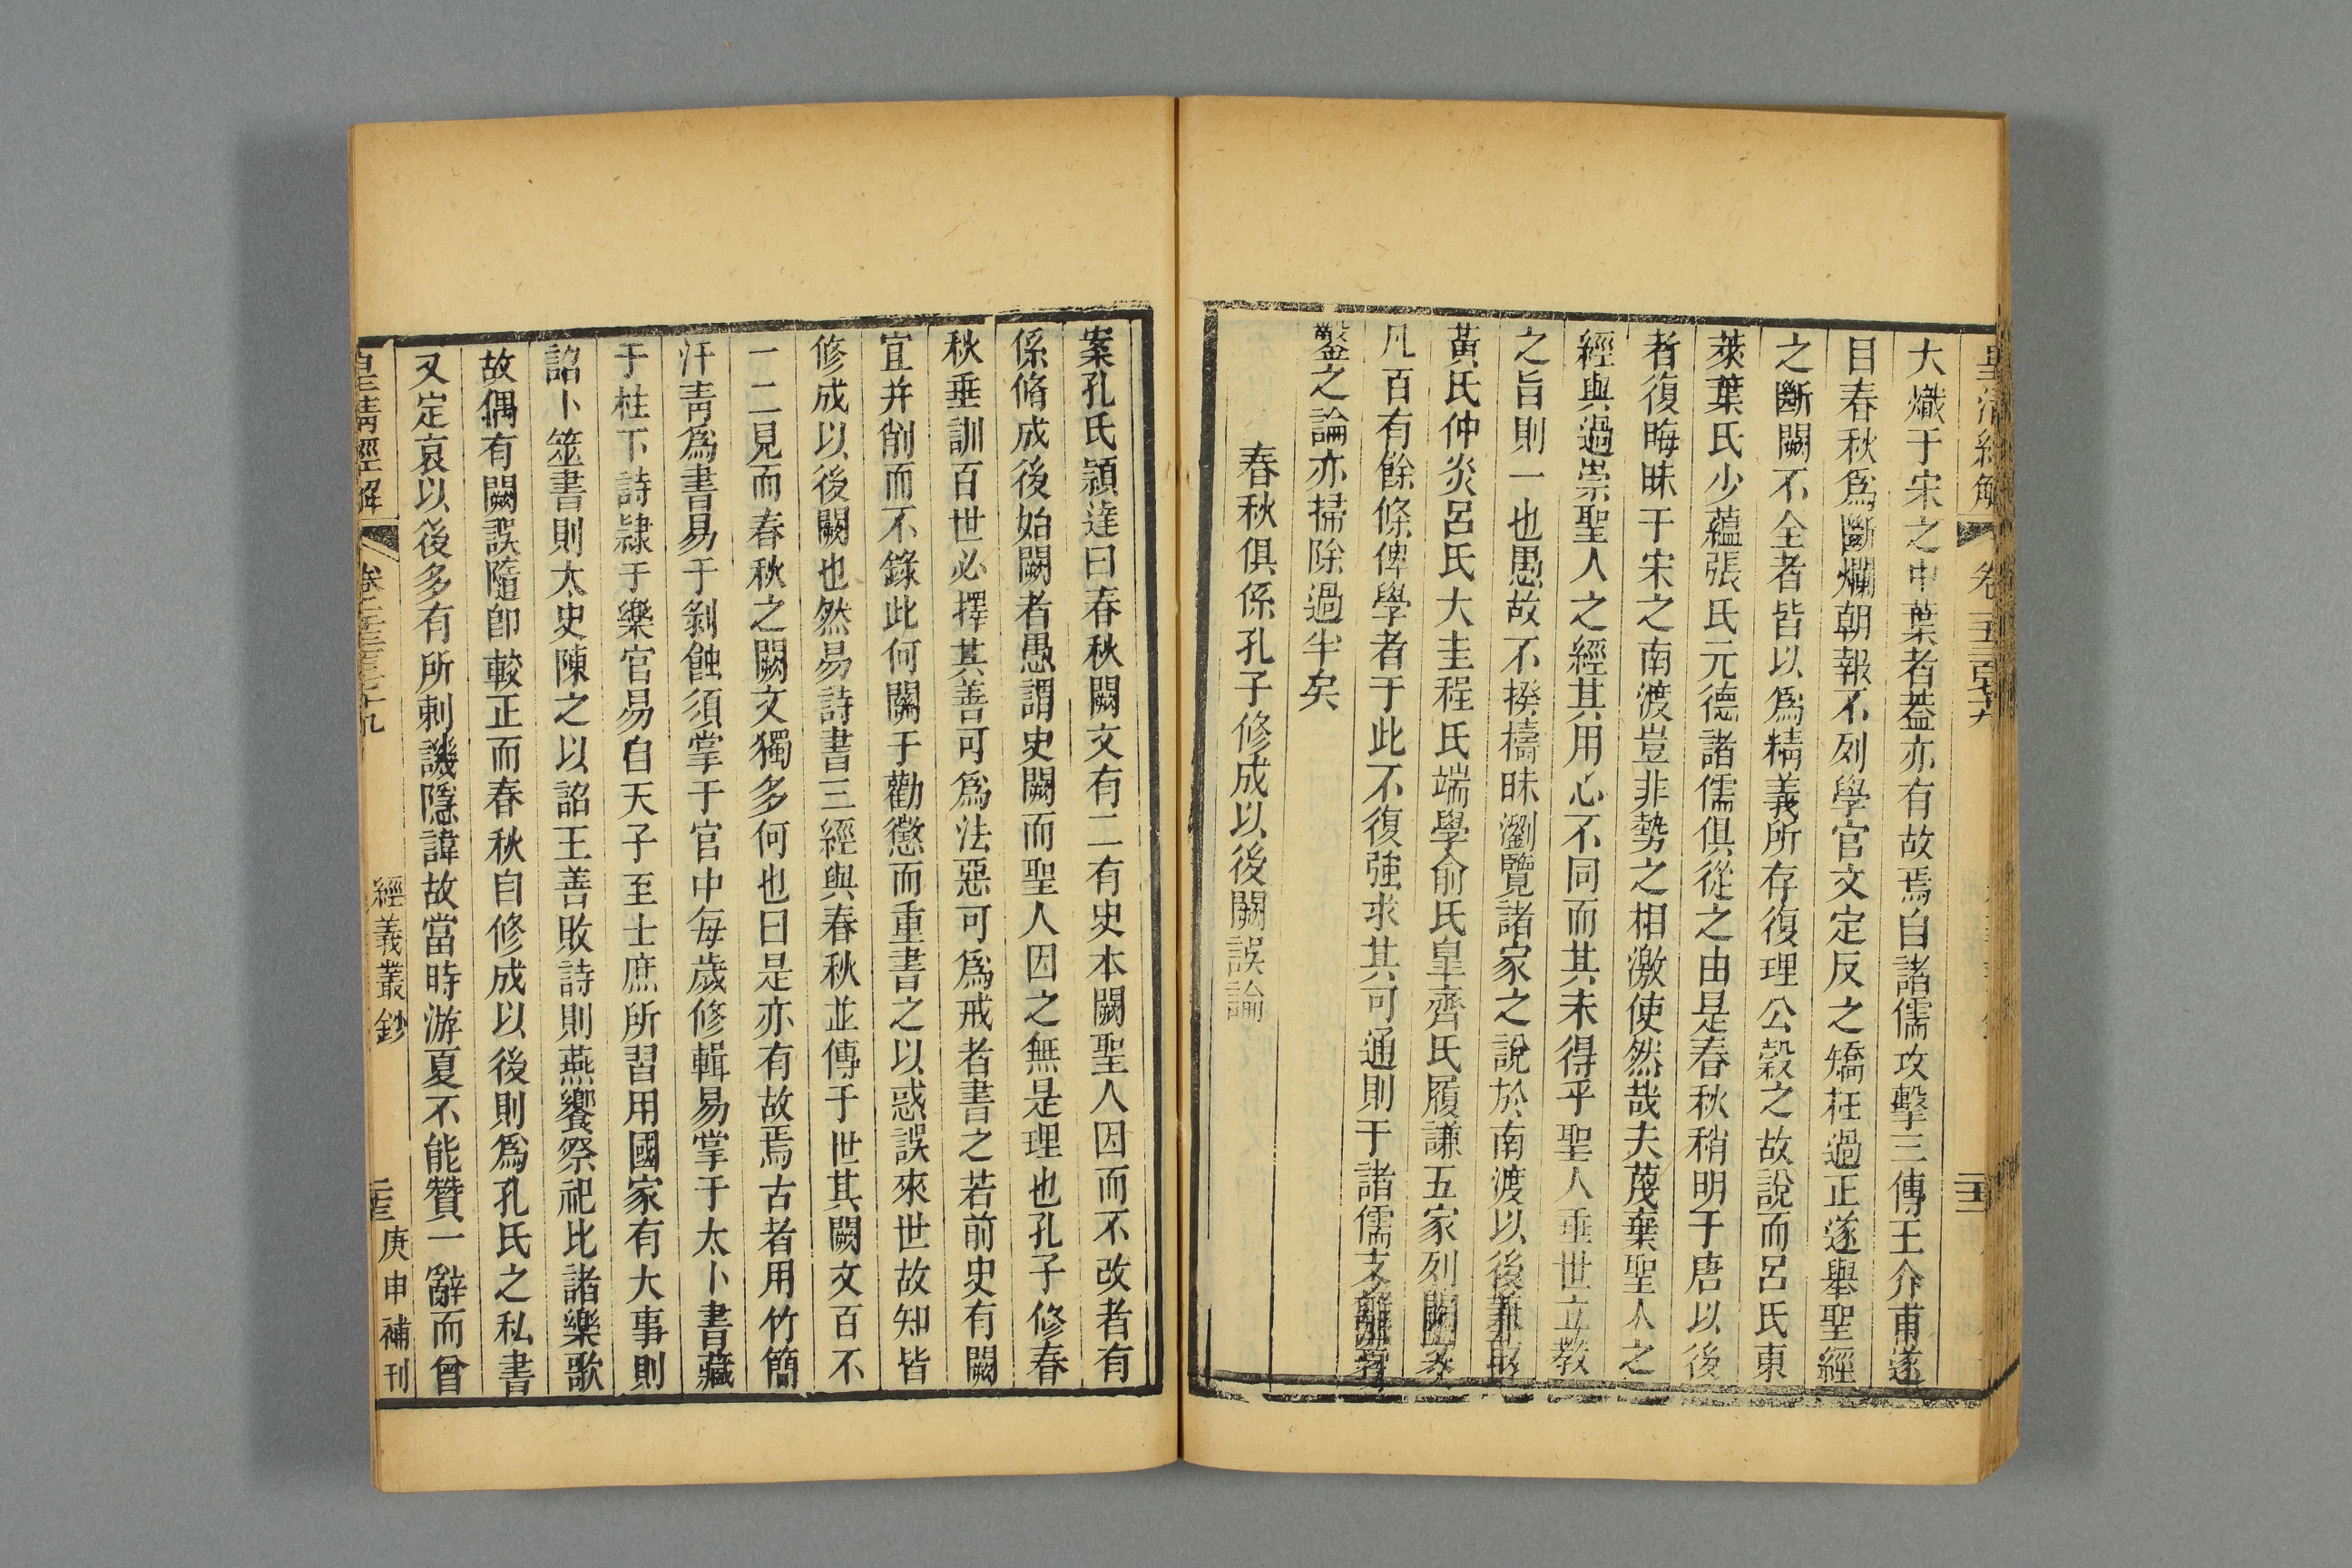 皇清經解
卷一千三百九十
大熾于宋之中葉者葢亦有故焉自諸儒攻擊三傳王介甫遂
目春秋爲斷爛朝報不列學官文定反之矯枉過正遂舉聖經
之斷闕不全者皆以爲精義所存復理公穀之故說而呂氏東
萊葉氏少蘊張氏元德諸儒俱從之由是春秋稍明于唐以後
者復晦昧于宋之南渡豈非勢之相激使然哉夫蔑棄聖人之
經與過崇聖人之經其用心不同而其未得乎聖人垂世立教
之旨則一也愚故不揆檮昧瀏覽諸家之說於南渡以後兼取
黃氏仲炎呂氏大圭程氏端學俞氏皋齊氏履謙五家列闕文
凡百有餘條俾學者于此不復強求其可通則于諸儒支離
鑿之論亦掃除過半矣
春秋俱係孔子修成以後闕誤論
案孔氏頴達曰春秋闕文有二有史本闕聖人因而不改者有
係脩成後始闕者愚謂史闕而聖人因之無是理也孔子修春
秋垂訓百世必擇其善可爲法惡可爲戒者書之若前史有闕
宜并削而不錄此何關于勸懲而重書之以惑誤來世故知皆
修成以後闕也然易詩書三經與春秋並傳于世其闕文百不
一二見而春秋之闕文獨多何也曰是亦有故焉古者用竹簡
汗靑爲書易于剝蝕須掌于官中每歲修輯易掌于太卜書藏
于柱下詩隷于樂官易自天子至士庶所習用國家有大事則
詔卜筮書則太史陳之以詔王善敗詩則燕饗祭祀比諸樂歌
故偶有闕誤隨卽較正而春秋自修成以後則爲孔氏之私書
又定哀以後多有所刺譏隱諱故當時游夏不能贊一辭而曾
皇清經解
經義叢鈔
庚申補刊